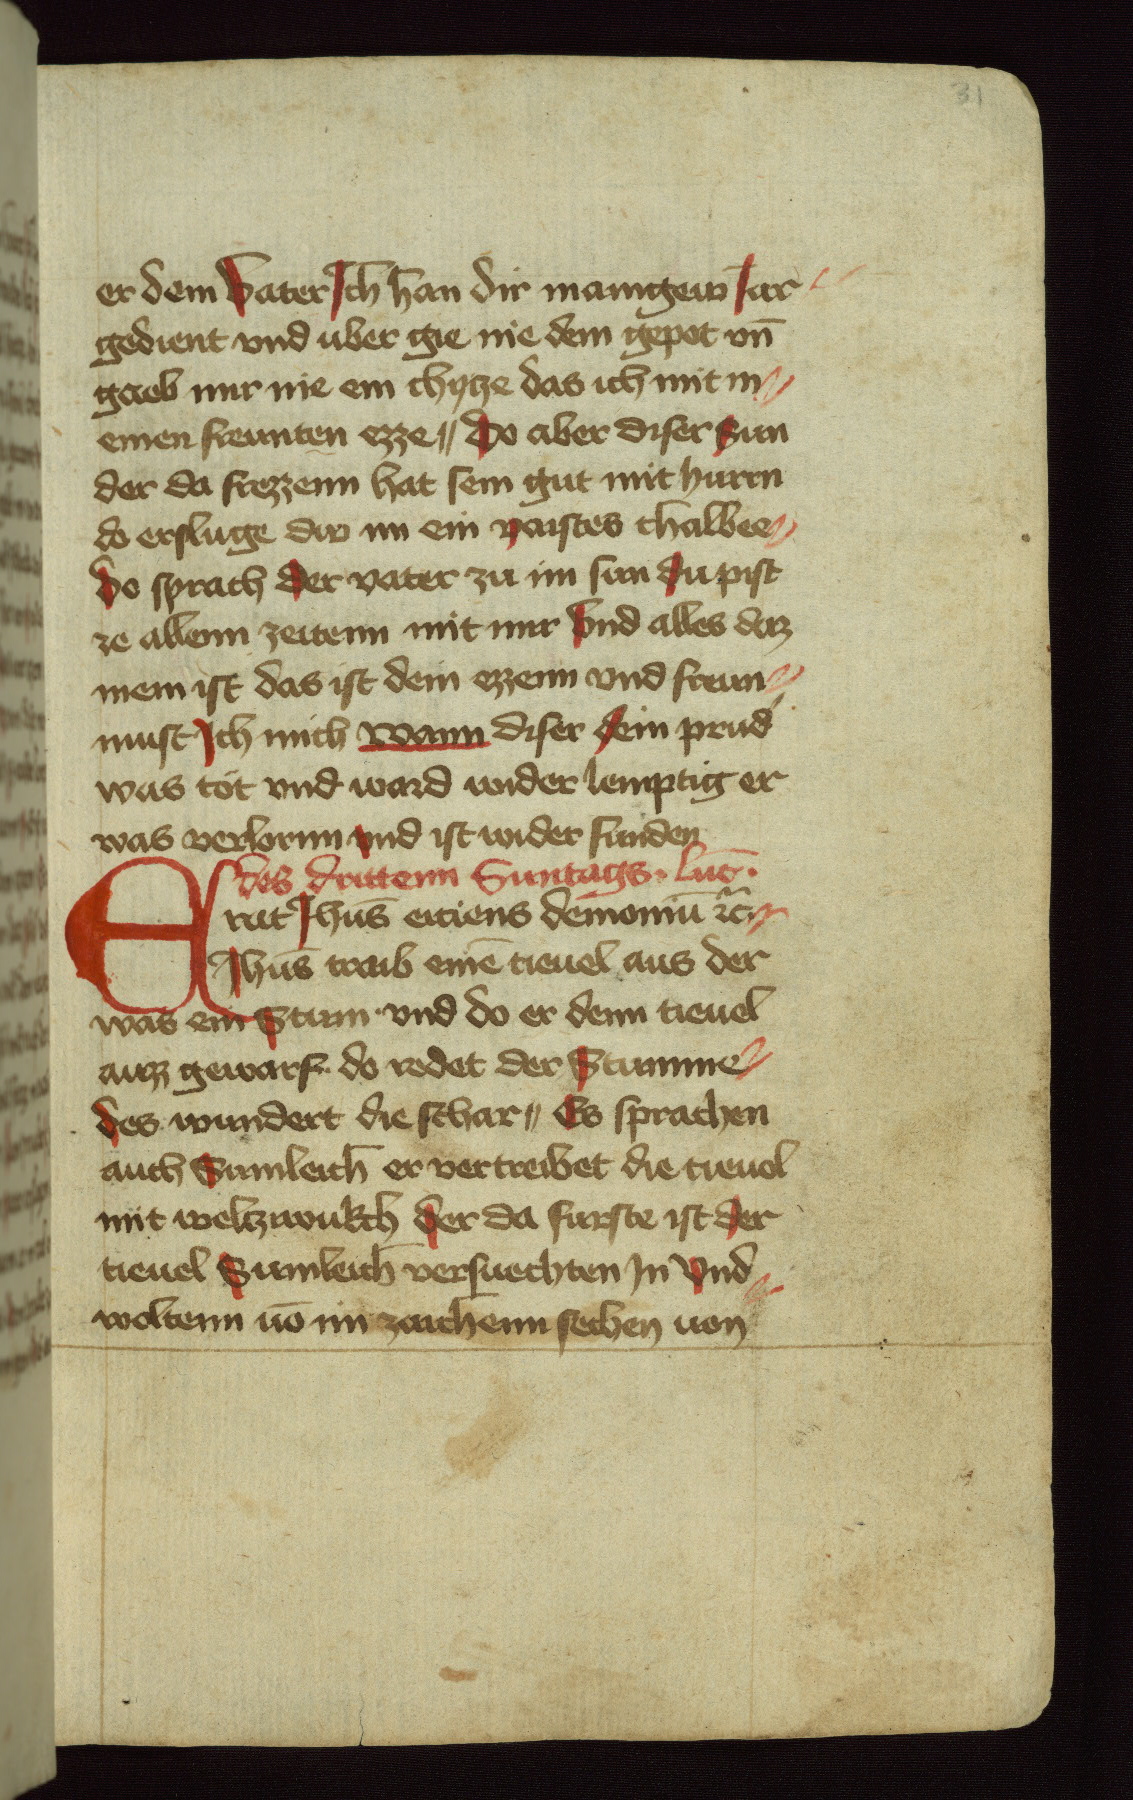 31
er dem Vater Ich han dir manigew Jar
gedient vnd uber gie nie dem gepot vn̄
gaeb mir nie ein chycze das ich mit m
einen freunten ezze Do aber diser Sun
der da frezzenn hat sein gut mit hurrn
do ersluge dw im ein vaistes chalbee
Do sprach der vater zu im sun du pist
ze allenn zeitenn mit mir Vnd alles daz
mein ist das ist dein ezzenn vnd freun
must Ich mich Wann diser dein prud
was tot vnd ward wider lemptig er
was verlornn vnd ist wider funden
des drittenn Suntags. luc̄.
Erat Jhūs eiciens demoniū ꝛc̄
Jhūs traib einē tieuel aus der
was ein Stum vnd do er denn tieuel
auzz gewarf do redet der Stumme
des wundert die schar Es sprachen
auch Sumleich er vertreibet die tieuel
mit welczwukch der da furste ist der
tieuel Sumleich versuechten In Vnd
woltenn uō im zaichenn sechen uon